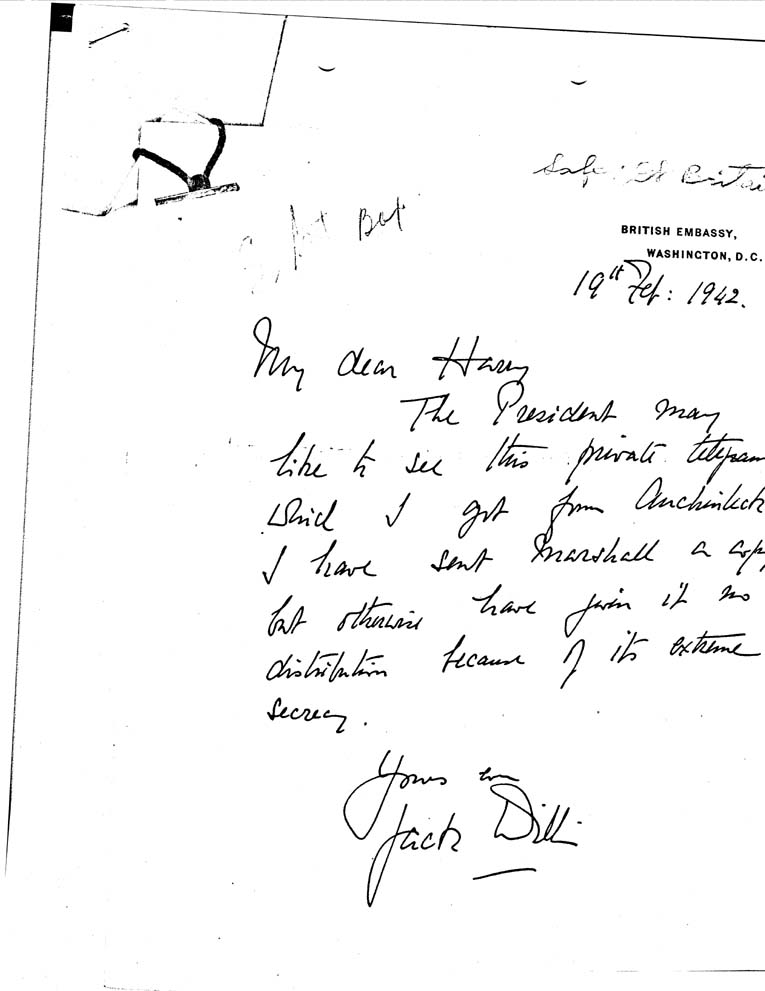 Safe: Gt Britai
Bet
BRITISH EMBASSY,
WASHINGTON, D.C.
19th Feb: 1942.
My dear Harry
The President may
like to see this private telegram
which I got from Auchinleck
I have sent Marshall a copy
but otherwise have given it no
distribution because of its extreme
secrecy.
Yours ever
Jack Dill